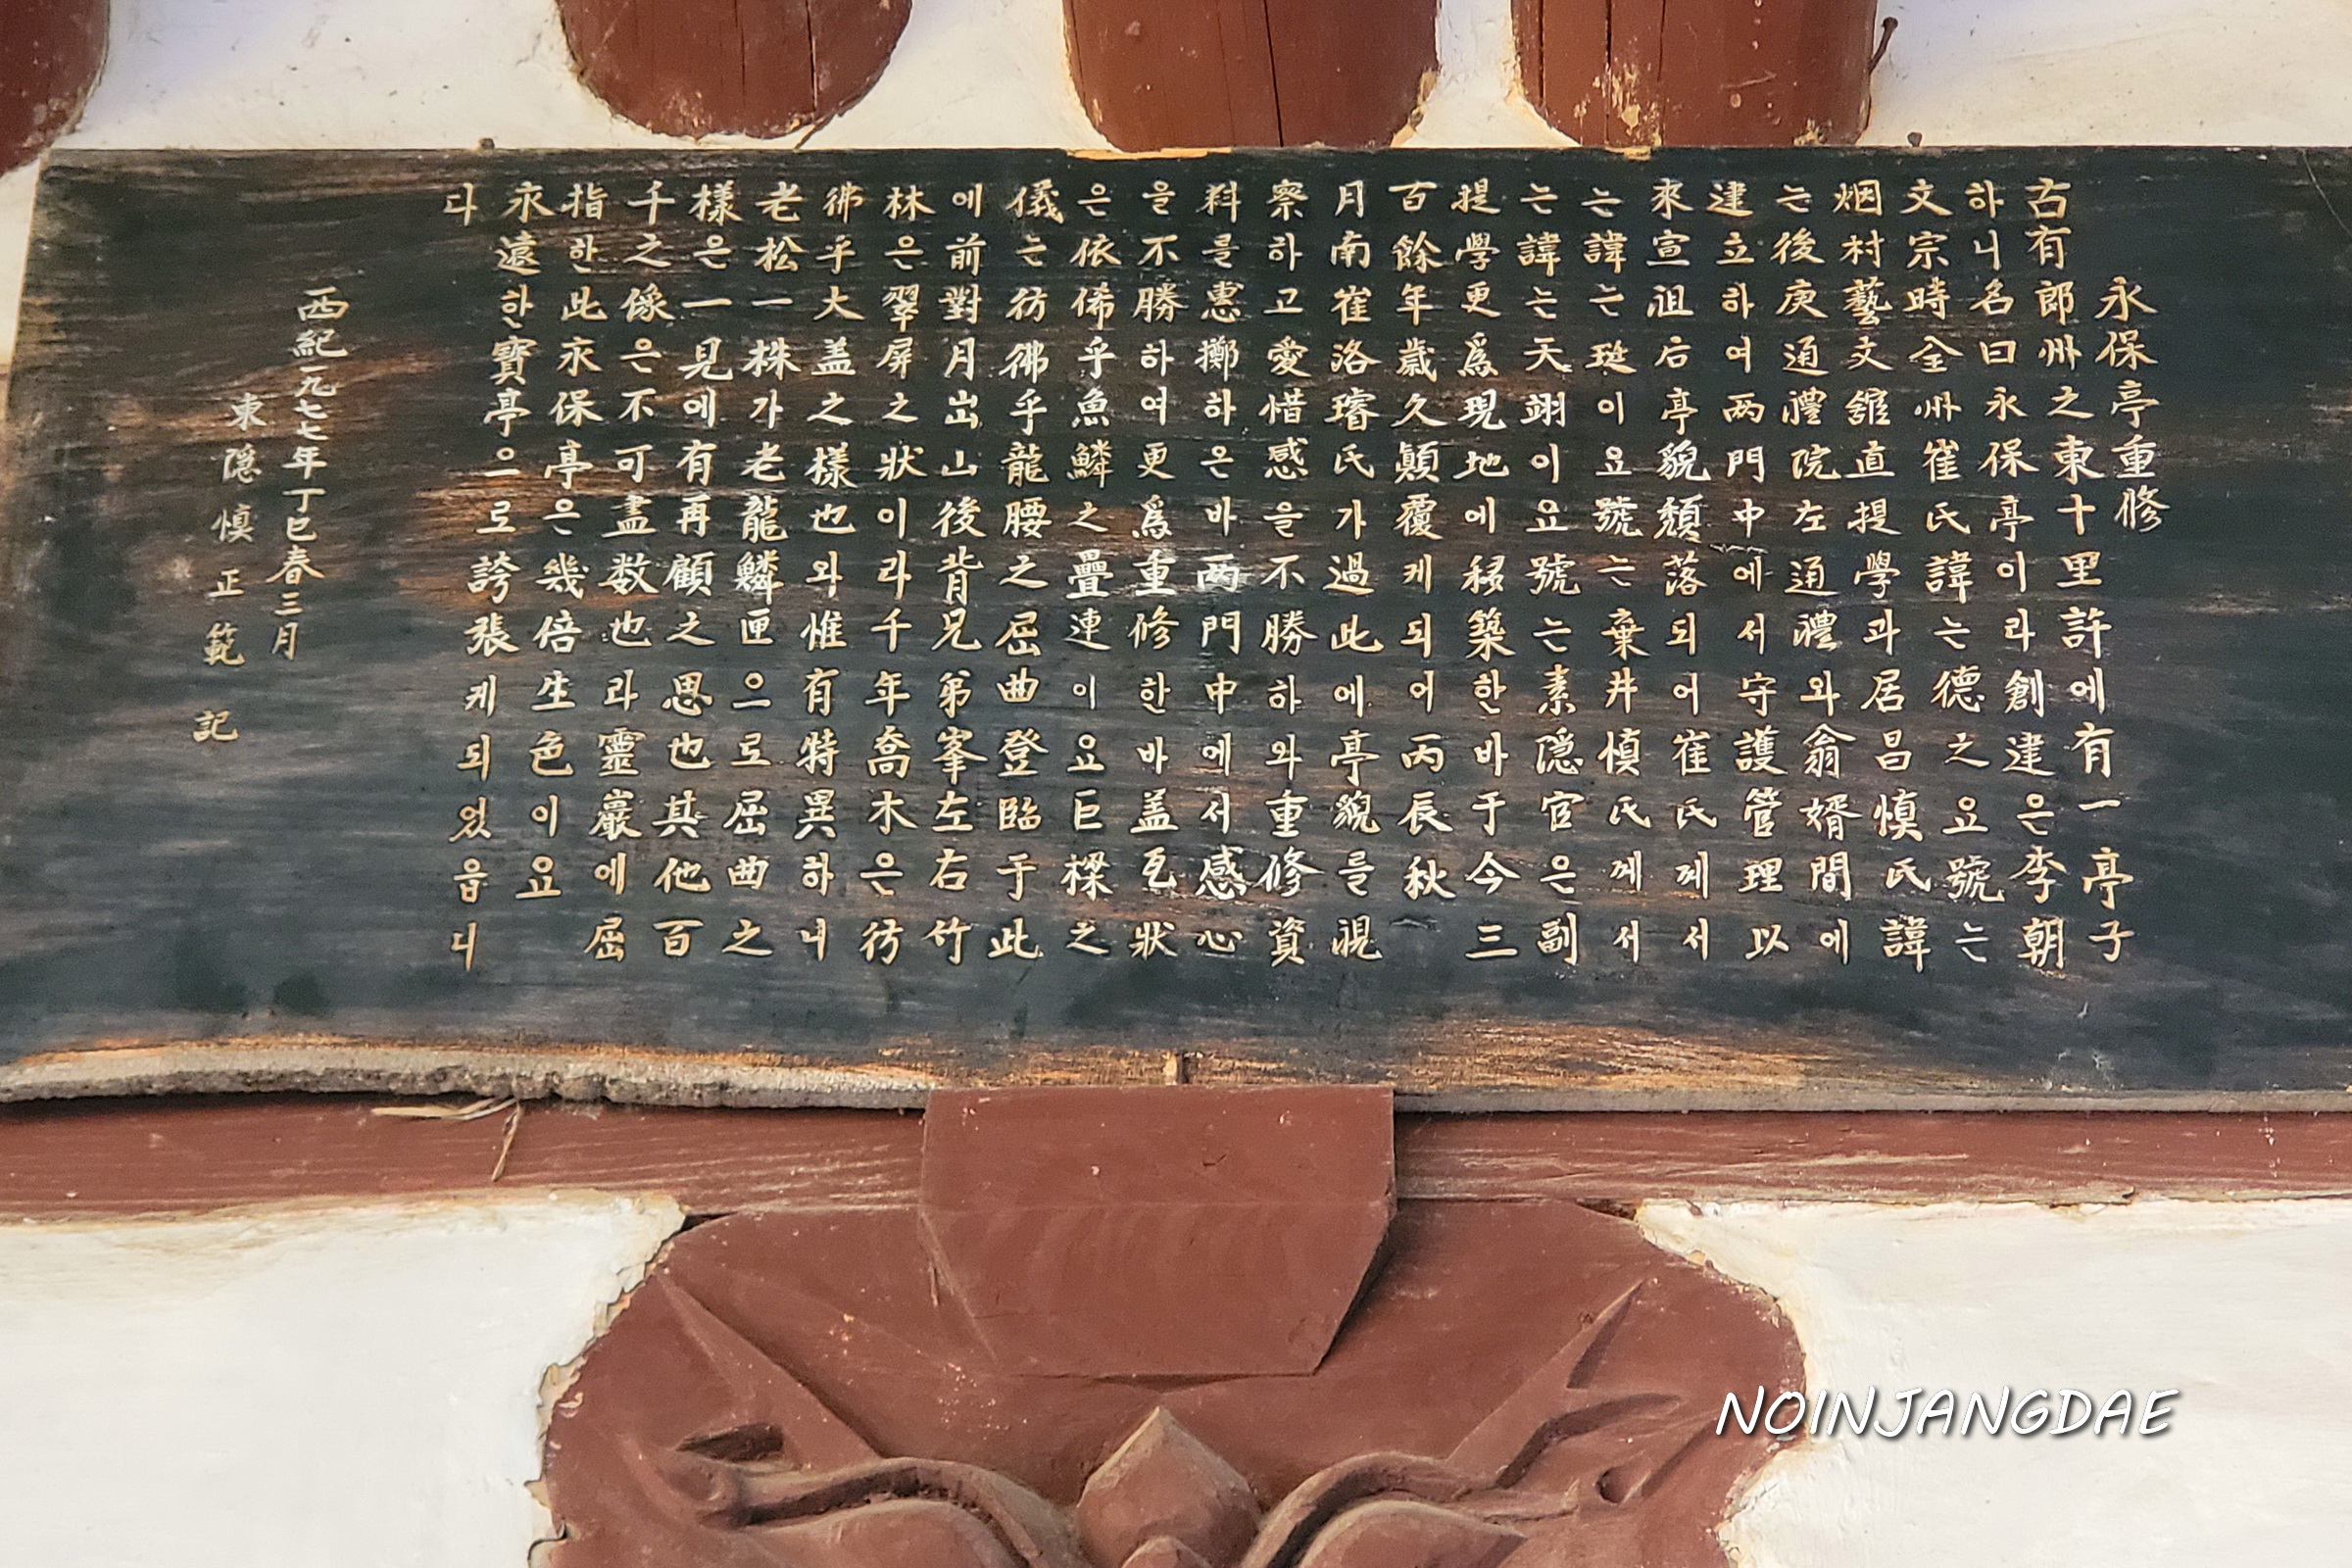 永保亭重修
古有郎州之東十里許에有一亭子
하니名曰永保亭이라創建은李朝
文宗時全州崔氏諱는德之요號는
烟村藝文舘直提學과居昌慎氏諱
는後庚通禮院左通禮와翁婿間에
建立하여両門中에서守護管理以
來宣祖后亭貌頹落되어崔氏께서
는諱는珽이요號는棄井慎氏께서
는諱는天翊이요號는素隠官은副
提學更爲現地에移築한바于今三
百餘年歲久顚覆케되어丙辰秋
月南崔洛璿氏가過此에亭貌를視
察하고愛惜感을不勝하와重修資
料를惠擲하은바両門中에서感心
을不勝하여更爲重修한바盖瓦狀
은依俙乎魚鱗之疊連이요巨樑之
儀는彷彿乎龍腰之屈曲登臨于此
에前對月出山後背兄弟峯左右竹
林은翠屏之狀이라千年喬木은彷
彿乎大盖之樣也와惟有特異하니
老松一株가老龍鱗匣으로屈曲之
樣은一見에有再顧之思也其他百
千之像은不可盡数也라靈巖에屈
指한此永保亭은幾倍生色이요
永遠한寶亭으로誇張케되었읍니
다
西紀一九七七年丁巳春三月
東隠慎正範記
NOINJANGDAE